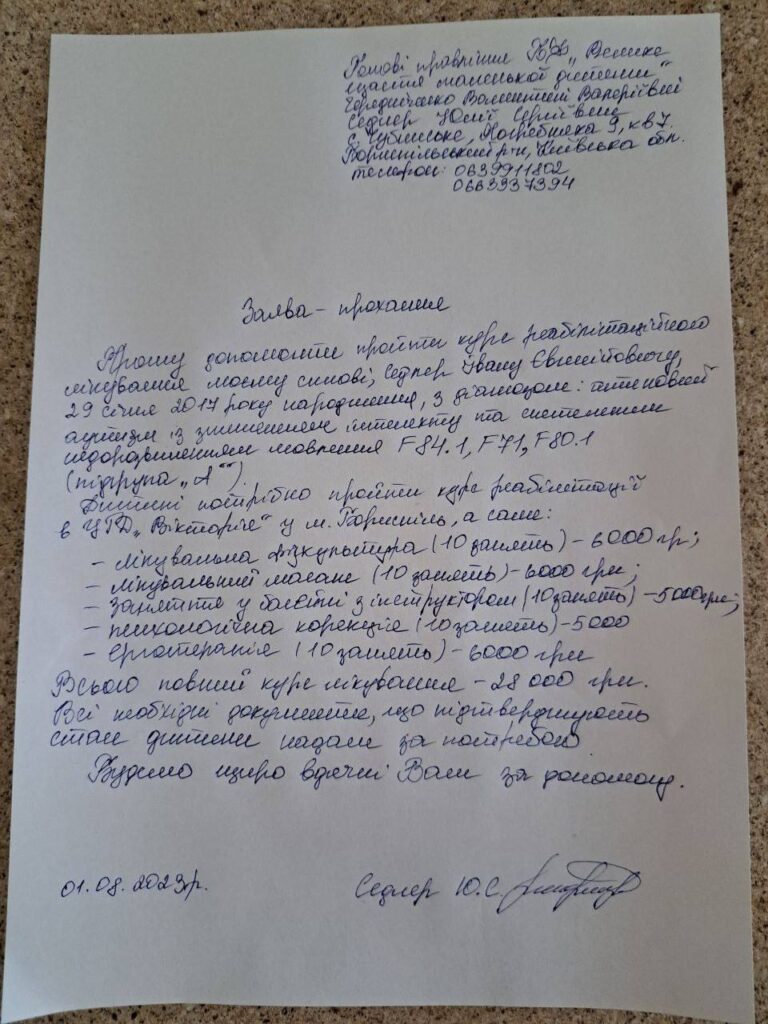 Голові правління БФ „Велике
щастя маленької дитини"
Городніченко Валентині Валеріївні
Седлер Юлії Сергіївни
с. Чубинське, Погребняка 9, кв 7
Бориспільський р-н, Київська обл.
телефон: 0639911802
0663937394
Заява - прохання
Прошу допомогти пройти курс реабілітаційного
лікування моєму синові, Седлер Івану
29 січня 2017 року народження, з діагнозом:
аутизм із зниженням інтелекту та системним
недорозвиненням мовлення F84.1, F71, F80.1
(підгрупа „А").
Дитині потрібно пройти курс реабілітації
в „Вікторія" у м. Бориспіль, а саме:
- лікувальна фізкультура (10 занять) - 6000 гр;
- лікувальний масаж (10 занять) - 6000 грн;
- заняття у басейні з інструктором (10 занять) - 5000 грн;
- психологічна корекція (10 занять) - 5000
- Ерготерапія (10 занять) - 6000 грн
Всього повний курс лікування - 28 000 грн.
Всі необхідні документи, що підтверджують
стан дитини надам за потребою
Будемо щиро вдячні Вам за допомогу.
01.08.2023р.
Седлер Ю.С.